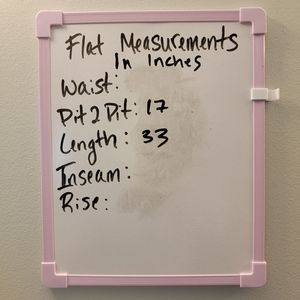 Flat Measurements
In Inches
Waist:
Pit2Pit: 17
Length: 33
Inseam:
Rise: